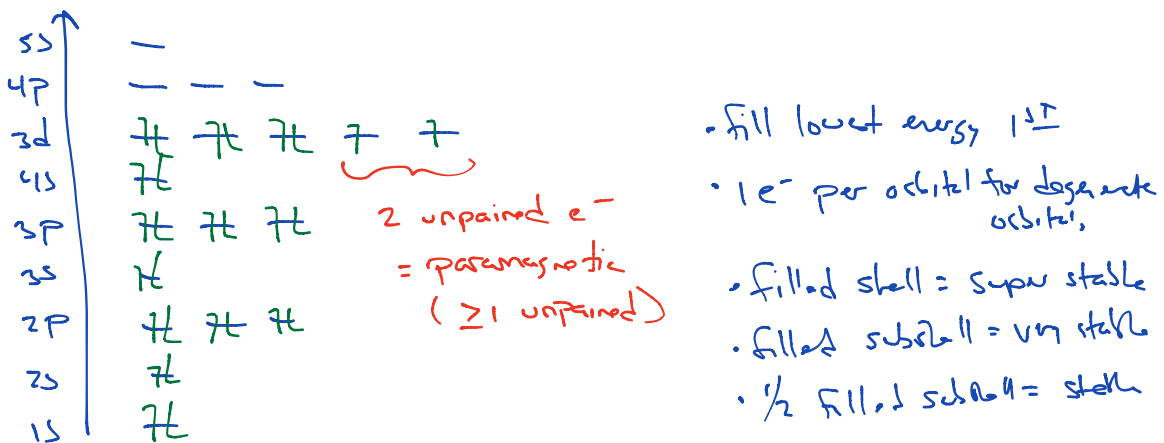 5s
4p
3d
4s
3p
3s
2p
2s
1s
2 unpaired e⁻
= paramagnetic
(≥1 unpaired)
• fill lowest energy 1ST
• 1e⁻ per orbital for degenerate
orbitals
• filled shell = super stable
• filled subshell = very stable
• 1/2 filled subshell = stable